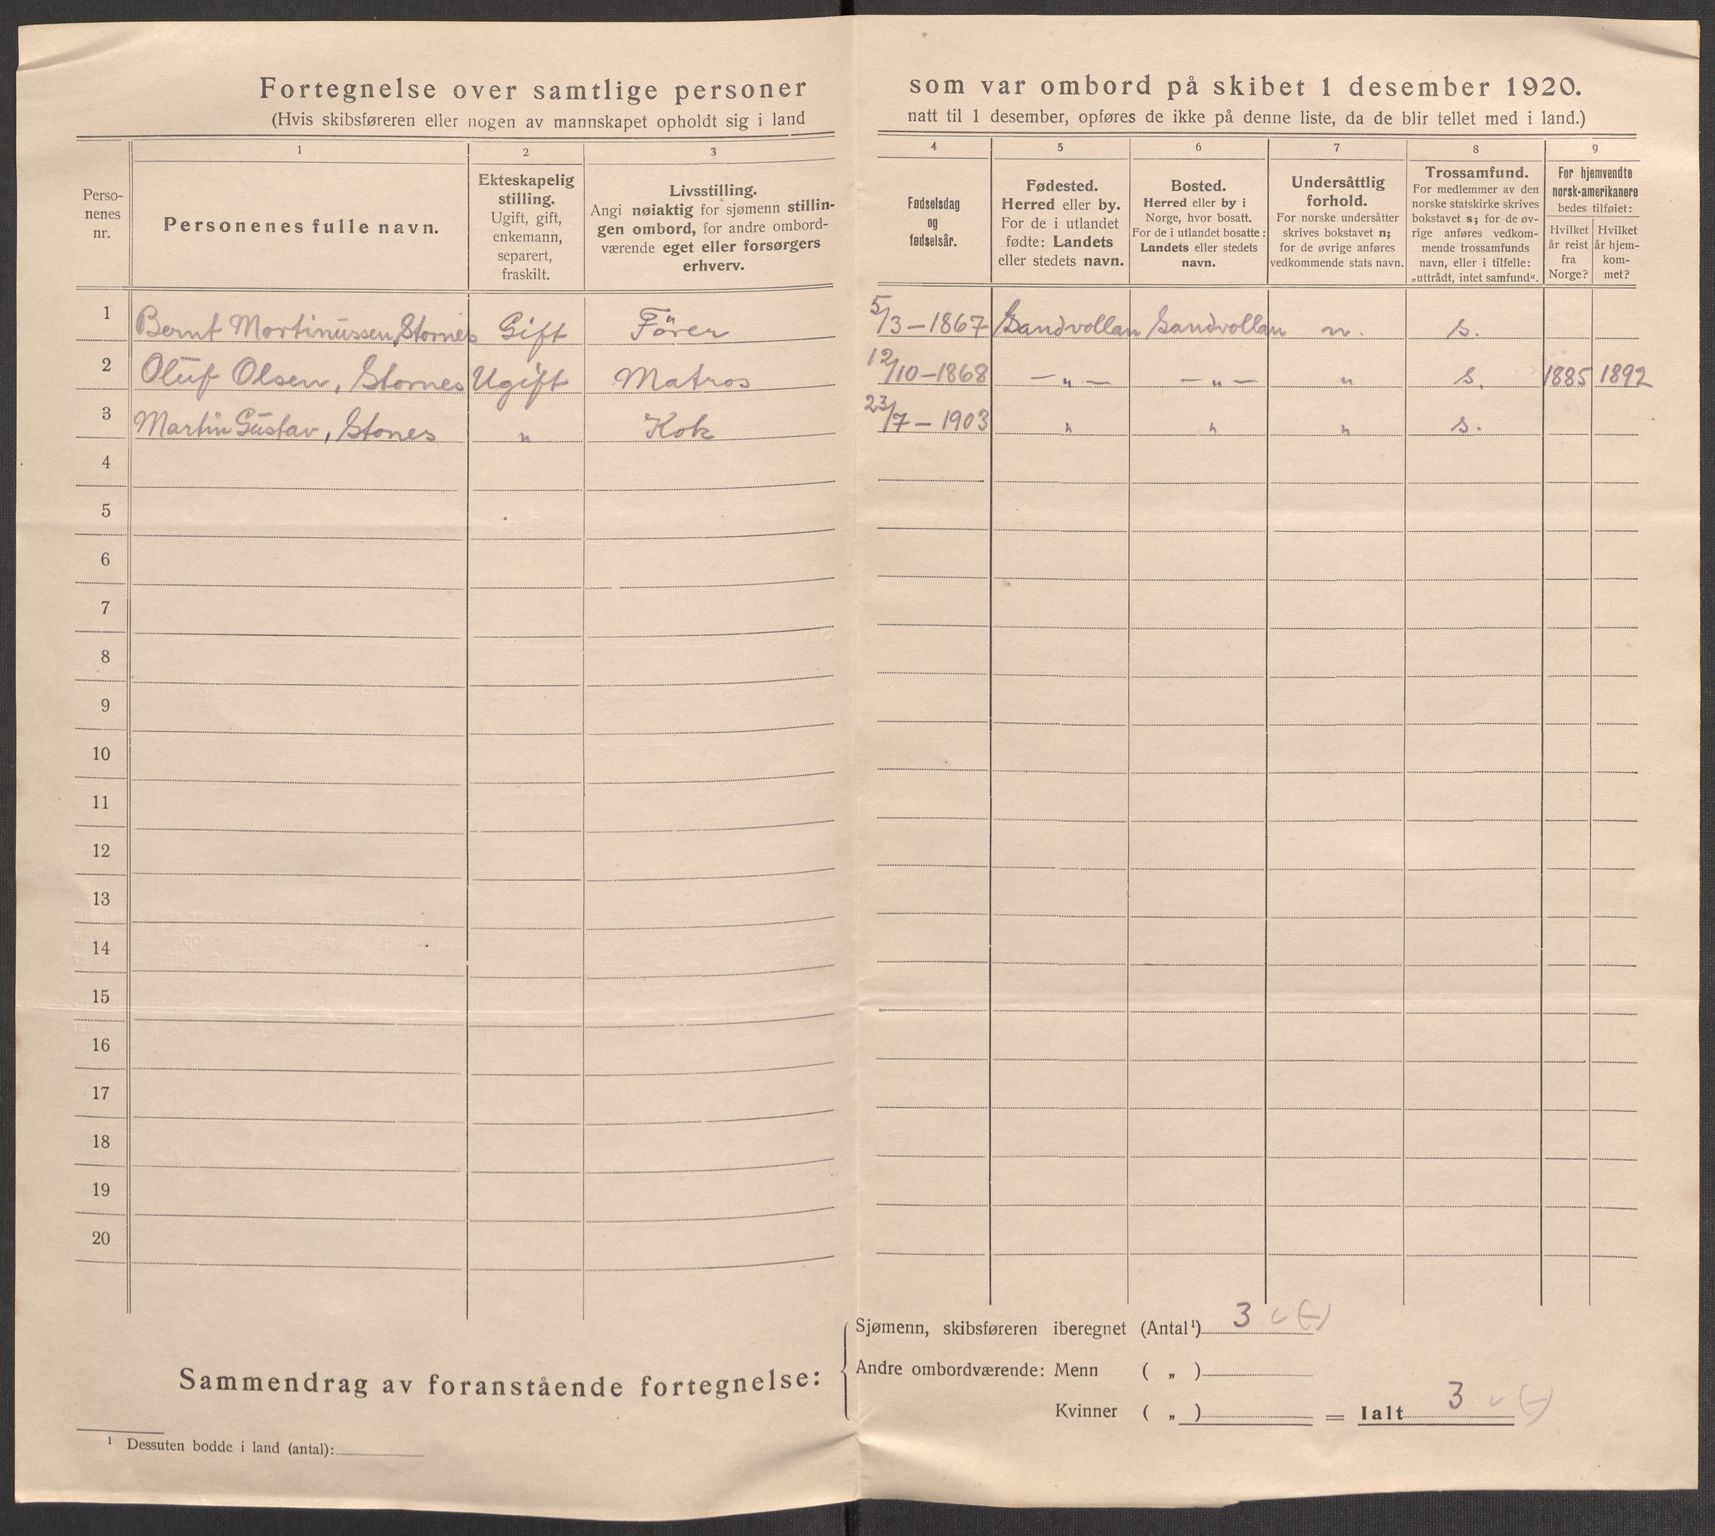 Fortegnelse over samtlige personer som var ombord på skibet 1 desember 1920.
(Hvis skibsføreren eller nogen av mannskapet opholdt sig i land natt til 1 desember, opføres de ikke på denne liste, da de blir tellet med i land.)
1 2 3 4 5 6 7 8 9
Perso-
nenes
nr.
Personenes fulle navn.
Ekteskapelig
stilling.
Ugift, gift,
enkemann,
separert,
fraskilt.
Livsstilling.
Angi nøiaktig for sjømenn stillin-
gen ombord, for andre ombord-
værende eget eller forsørgers
erhverv.
Fødselsdag
og
fødselsår.
Fødested.
Herred eller by.
For de i utlandet
fødte: Landets
eller stedets navn.
Bosted.
Herred eller by i
Norge, hvor bosatt.
For de i utlandet bosatte:
Landets eller stedets
navn.
Undersåttlig
forhold.
For norske undersåtter
skrives bokstavet n;
for de øvrige anføres
vedkommende stats navn.
Trossamfund.
For medlemmer av den
norske statskirke skrives
bokstavet s; for de øv-
rige anføres vedkom-
mende trossamfunds
navn, eller i tilfelle:
„uttrådt, intet samfund“.
For hjemvendte
norsk-amerikanere
bedes tilføiet:
Hvilket
år reist
fra
Norge?
Hvilket
år hjem-
kom-
met?
1 Bernt Martinussen, Stornes Gift Fører 5/3 - 1867 Sandvollan Sandvollan n. s.
2 Oluf Olsen, Stornes Ugift Matros 12/10 - 1868 - „ - - „ - „ s. 1885 1892
3 Martin Gustav, Stones „ Kok 23/7 - 1903 „ „ „ s.
4
5
6
7
8
9
10
11
12
13
14
15
16
17
18
19
20
Sammendrag av foranstående fortegnelse:
Sjømenn, skibsføreren iberegnet (Antal¹) 3 (-)
Andre ombordværende: Menn ( „ )
Kvinner ( „ ) = Ialt 3 (-)
¹ Dessuten bodde i land (antal):